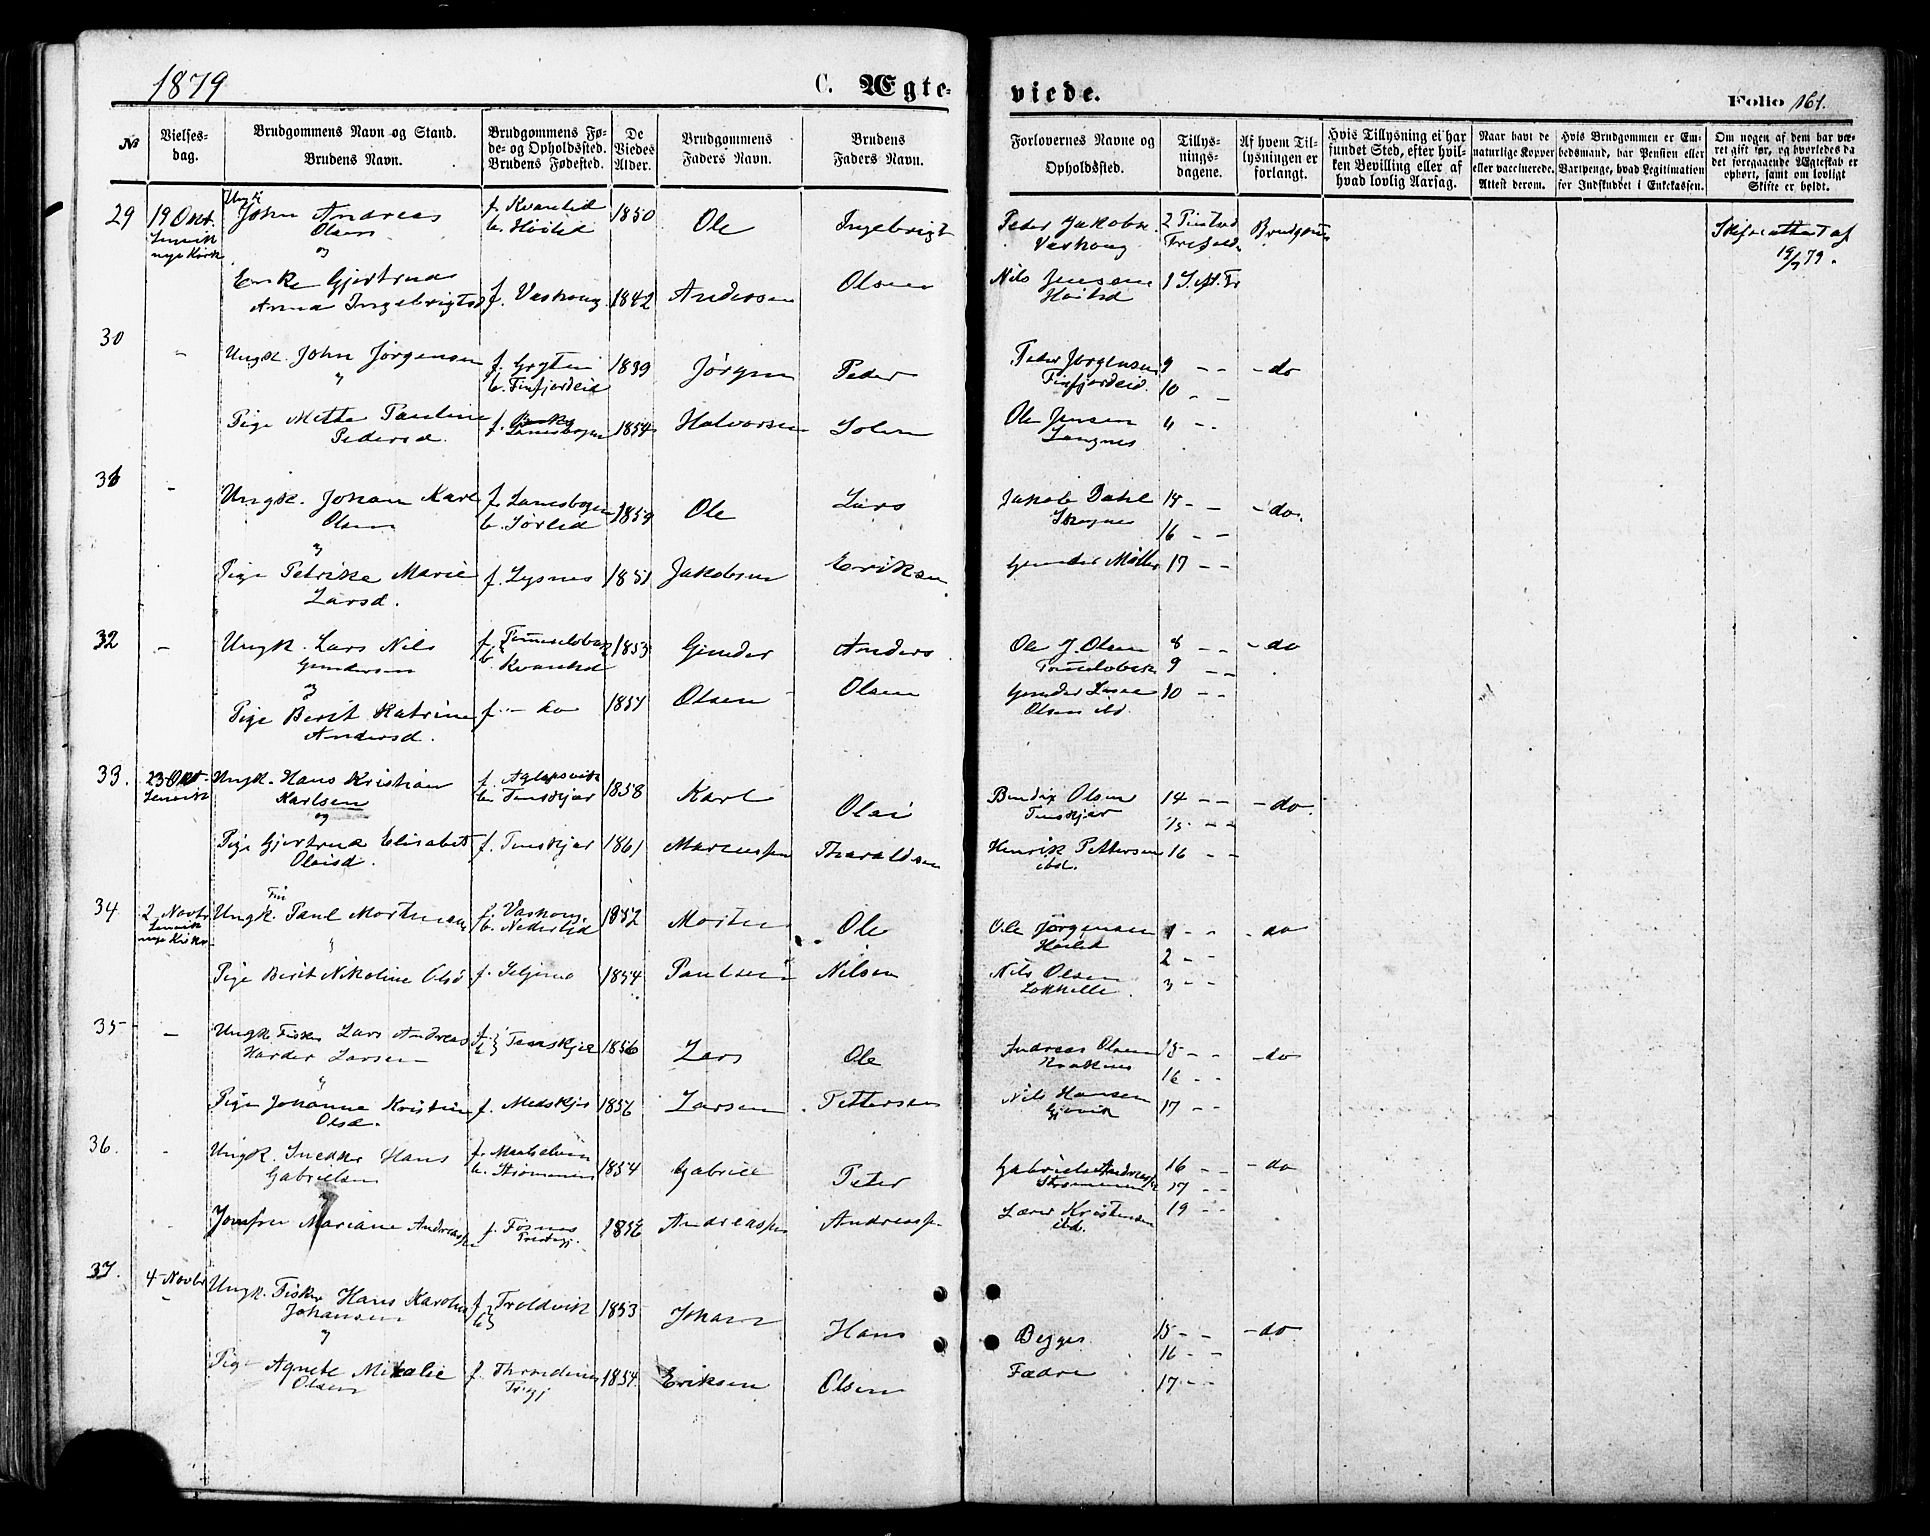 1879
C. Ægte-
viede.
Folio 161.
№
Vielses-
dag.
Brudgommens Navn og Stand.
Brudens Navn.
Brudgommens Fø-
de- og Opholdssted.
Brudens Fødested.
De
Viedes
Alder.
Brudgommens
Faders Navn.
Brudens
Faders Navn.
Forlovernes Navne og
Opholdssted.
Tillys-
nings-
dagene.
Af hvem Til-
lysningen er
forlangt.
Hvis Tillysning ei har
fundet Sted, efter hvil-
ken Bevilling eller af
hvad lovlig Aarsag.
Naar havt de
naturlige Kopper
eller vaccinerede.
Attest derom.
Hvis Brudgommen er Em-
bedsmand, har Pension eller
Vartpenge, hvad Legitimation
for Indskudet i Enkekassen.
Om nogen af dem har væ-
ret gift før, og hvorledes da
det foregaaende Ægteskab er
ophørt, samt om lovligt
Skifte er holdt.
29
19 Okt.
Lenvik
nye Kirke
Ungk.
John Andreas
Olsen
og
Enke Gjertrud
Anna Ingebrigtsd
f. Kvanlid
b. Höilid
f. Vaskong
1850
1842
Ole
Andersen
Ingebrigt
Olsen
Peder Jakobs.
Vaskong
Nils Jensen
Höilid
Brudgommen
Skifteattest af
19/9 79.
30
Ungk. John Jørgensen
"
Pige Mette Pauline
Pedersd.
f. Grytin
b. Finfjordeid
1839
1854
Jörgen
Halvorsen
Peder
Solem
Peder Jørgensen
Finfjordeid
Ole Jensen
Langnes
9 - -
10 - -
11 - -
- do
31
-
Ungk. Johan Karl
Olsen
og
Pige Petrike Marie
Larsd.
f. Lanesbogen
b. Sørlid
f. Lysnes
1859
1851
Ole
Jakobsen
Lars
Eriksen
Jakob Dahl
Gunder Møller
16 - -
17 - -
- do.
32
-
Ungk. Lars Nils
Gundersen
og
Pige Berit Katrine
Andersd.
b. Kvanlid
f. - do
1853
1857
Gunder
Olsen
Anders
Olsen
Ole J. Olsen
Gunder Lasse
Olsen ibd.
8 - -
9 - -
10 - -
- do
33.
23 Okt.
Lenvik
Ungk. Hans Kristian
Karlsen
og
Pige Gjertrud Elisabet
Olaisd.
f. Aglapsvik
b. Finskjær
f. Finskjær
1858
1861
Karl
Marcussen
Olai
Tharaldsen
Bendix Olsen
Finskjær
Henrik Pettersen
ibd.
14 - -
15 - -
16 - -
- do.
34
2 Novbr
Lenvik
nye Kirke
Fin
Ungk. Paul Mortensen
"
Pige Berit Nikoline Olsd
f. Vaskong
b. Nederlid
1852
1854
Morten
Paulsen
Ole
Nilsen
Ole Jørgensen
Höilid
Nils Olsen
1 - -
2 - -
3 - -
- do
35
-
Ungk. Fisker Lars Andreas
Harder Larsen
"
Pige Johanna Kristine
Olsd.
1856
1856
Lars
Larsen
Ole
Pettersen
Andreas Olsen
Nils Hansen
Gjövik
15 - -
16 - -
17 - -
- do
36.
Ungk. Snedker Hans
Gabrielsen
"
Jomfru Mariane Andreassen
f. Maalselven
b. Strømmen
1854
Gabriel
Andreassen
Peter
Andreassen
Gabriel Andreassen
Strømmen
Lærer Kristensen
ibd.
16 - -
17 - -
19 - -
- do
37.
4 Novbr
Ungk. Fisker Hans Karolius
Johansen
"
Pige Agnete Mikalie
Olsen
f. } Troldvik
b. }
f. Throndenes
1853
1854
Johan
Eriksen
Hans
Olsen
Begges
Fædre
15 - -
16 - -
17 - -
- do